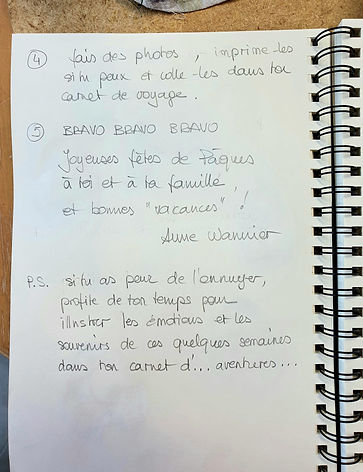 ④ fais des photos, imprime-les
si tu peux et colle-les dans ton
carnet de voyage.
⑤ BRAVO BRAVO BRAVO
Joyeuses fêtes de Pâques
à toi et à ta famille,
et bonnes "vacances"!
Anne Wannier
P.S. si tu as peur de t'ennuyer,
profite de ton temps pour
illustrer les émotions et les
souvenirs de ces quelques semaines
dans ton carnet d'... aventures...